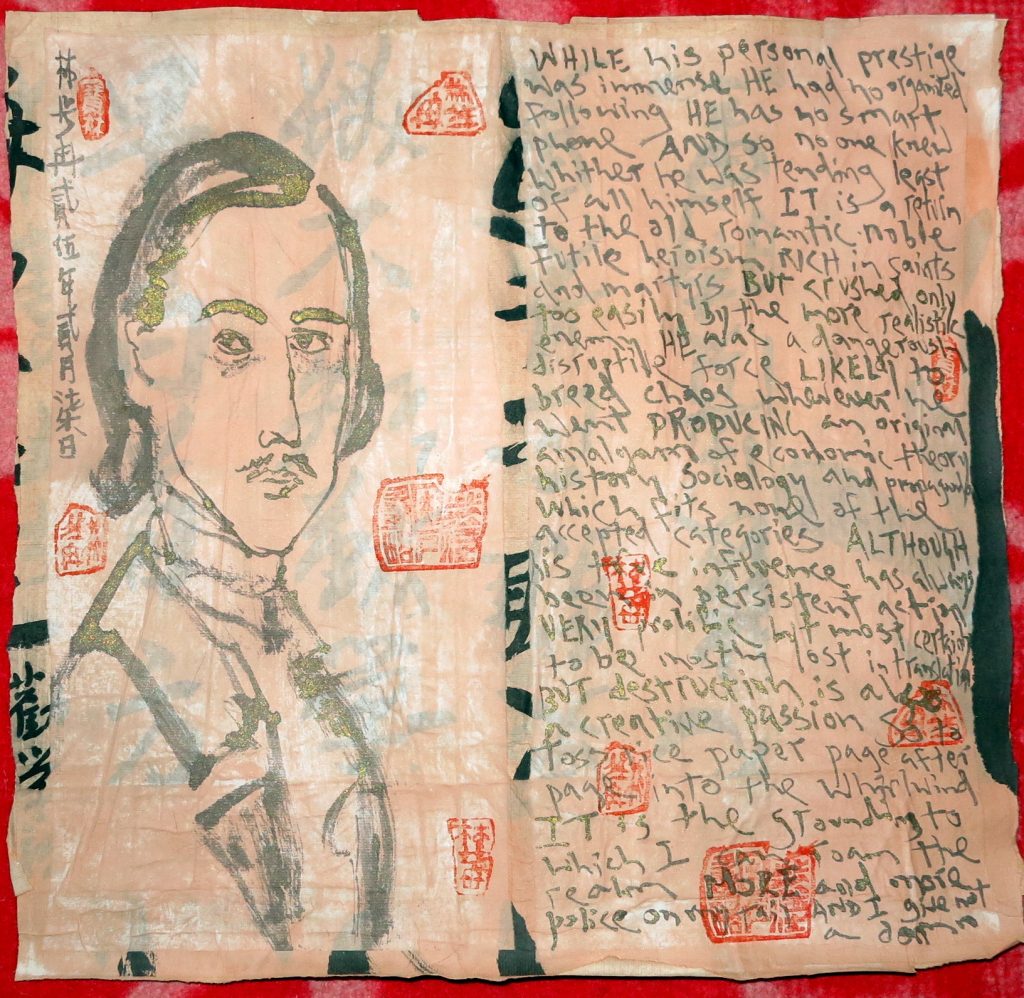 林步冉貳伍年貳月柒日
WHILE his personal prestige
was immense HE had no organized
following HE has no smart
phone AND so no one knew
whither he was tending least
of all himself IT is a return
to the old romantic noble
futile heroism RICH in saints
and martyrs BUT crushed only
too easily by the more realistic
enemy HE was a dangerously
disruptive force LIKELY to
breed chaos whenever he
went PRODUCING an original
amalgam of economic theory
history sociology and propaganda
which fits none of the
accepted categories ALTHOUGH
his influence has always
been persistent action
VERY prolific but most certain
to be mostly lost in translation
BUT destruction is a
a creative passion so to
toss rice paper page after
page into the whirlwind
IT is the grounding to
which I can roam the
realm MORE and more
police on my tail AND I give not
a damn